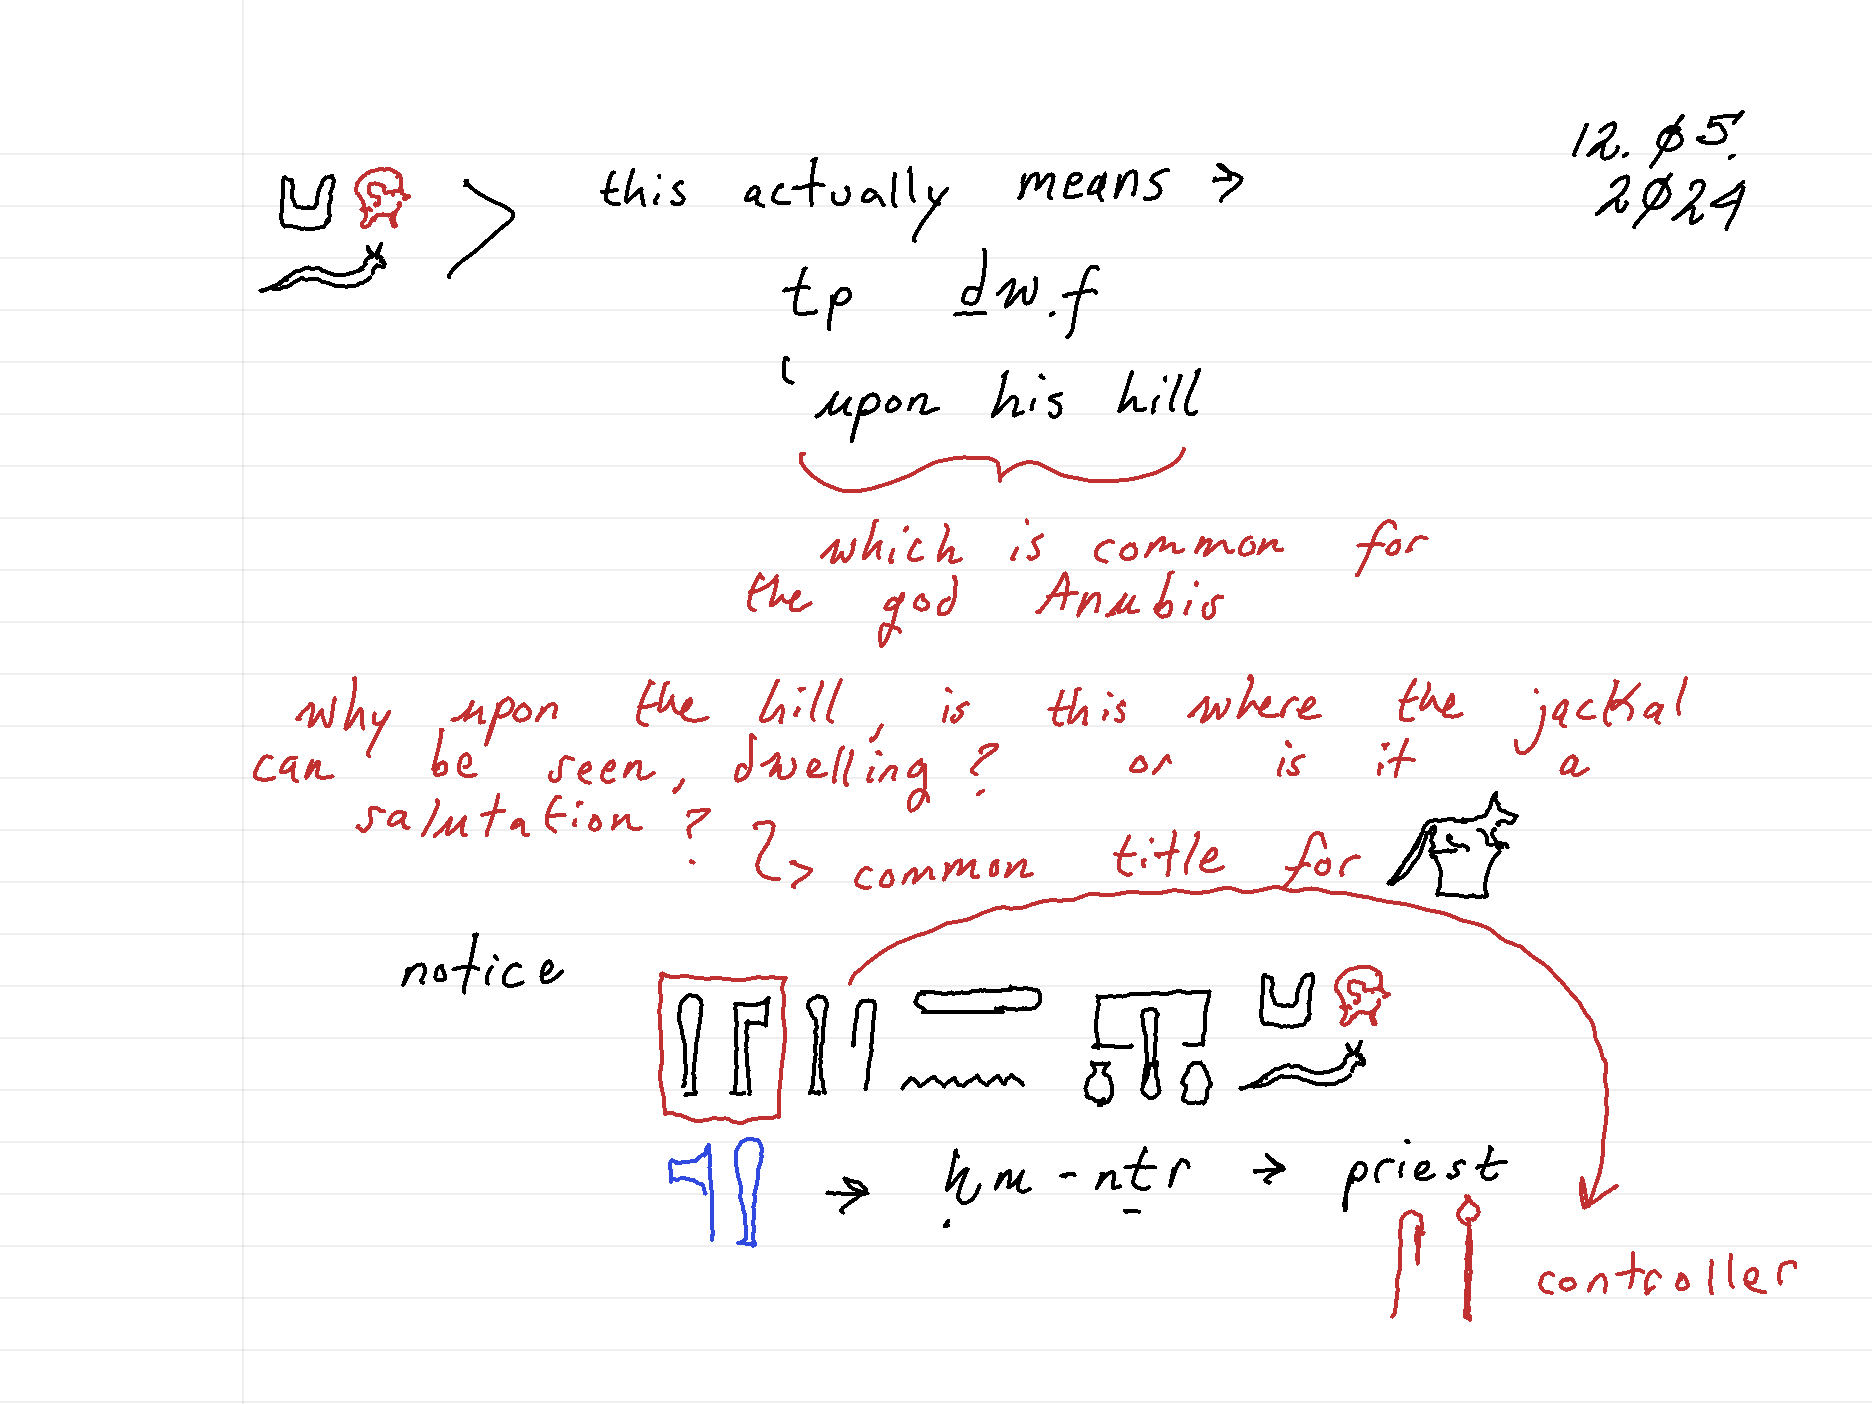 12. ø5.
2ø24
this actually means →
tp ḏw.f
'upon his hill
which is common for
the god Anubis
why upon the hill, is this where the jackal
can be seen, dwelling? or is it a
salutation?
↳ common title for
notice
→ ḥm-nṯr → priest
controller